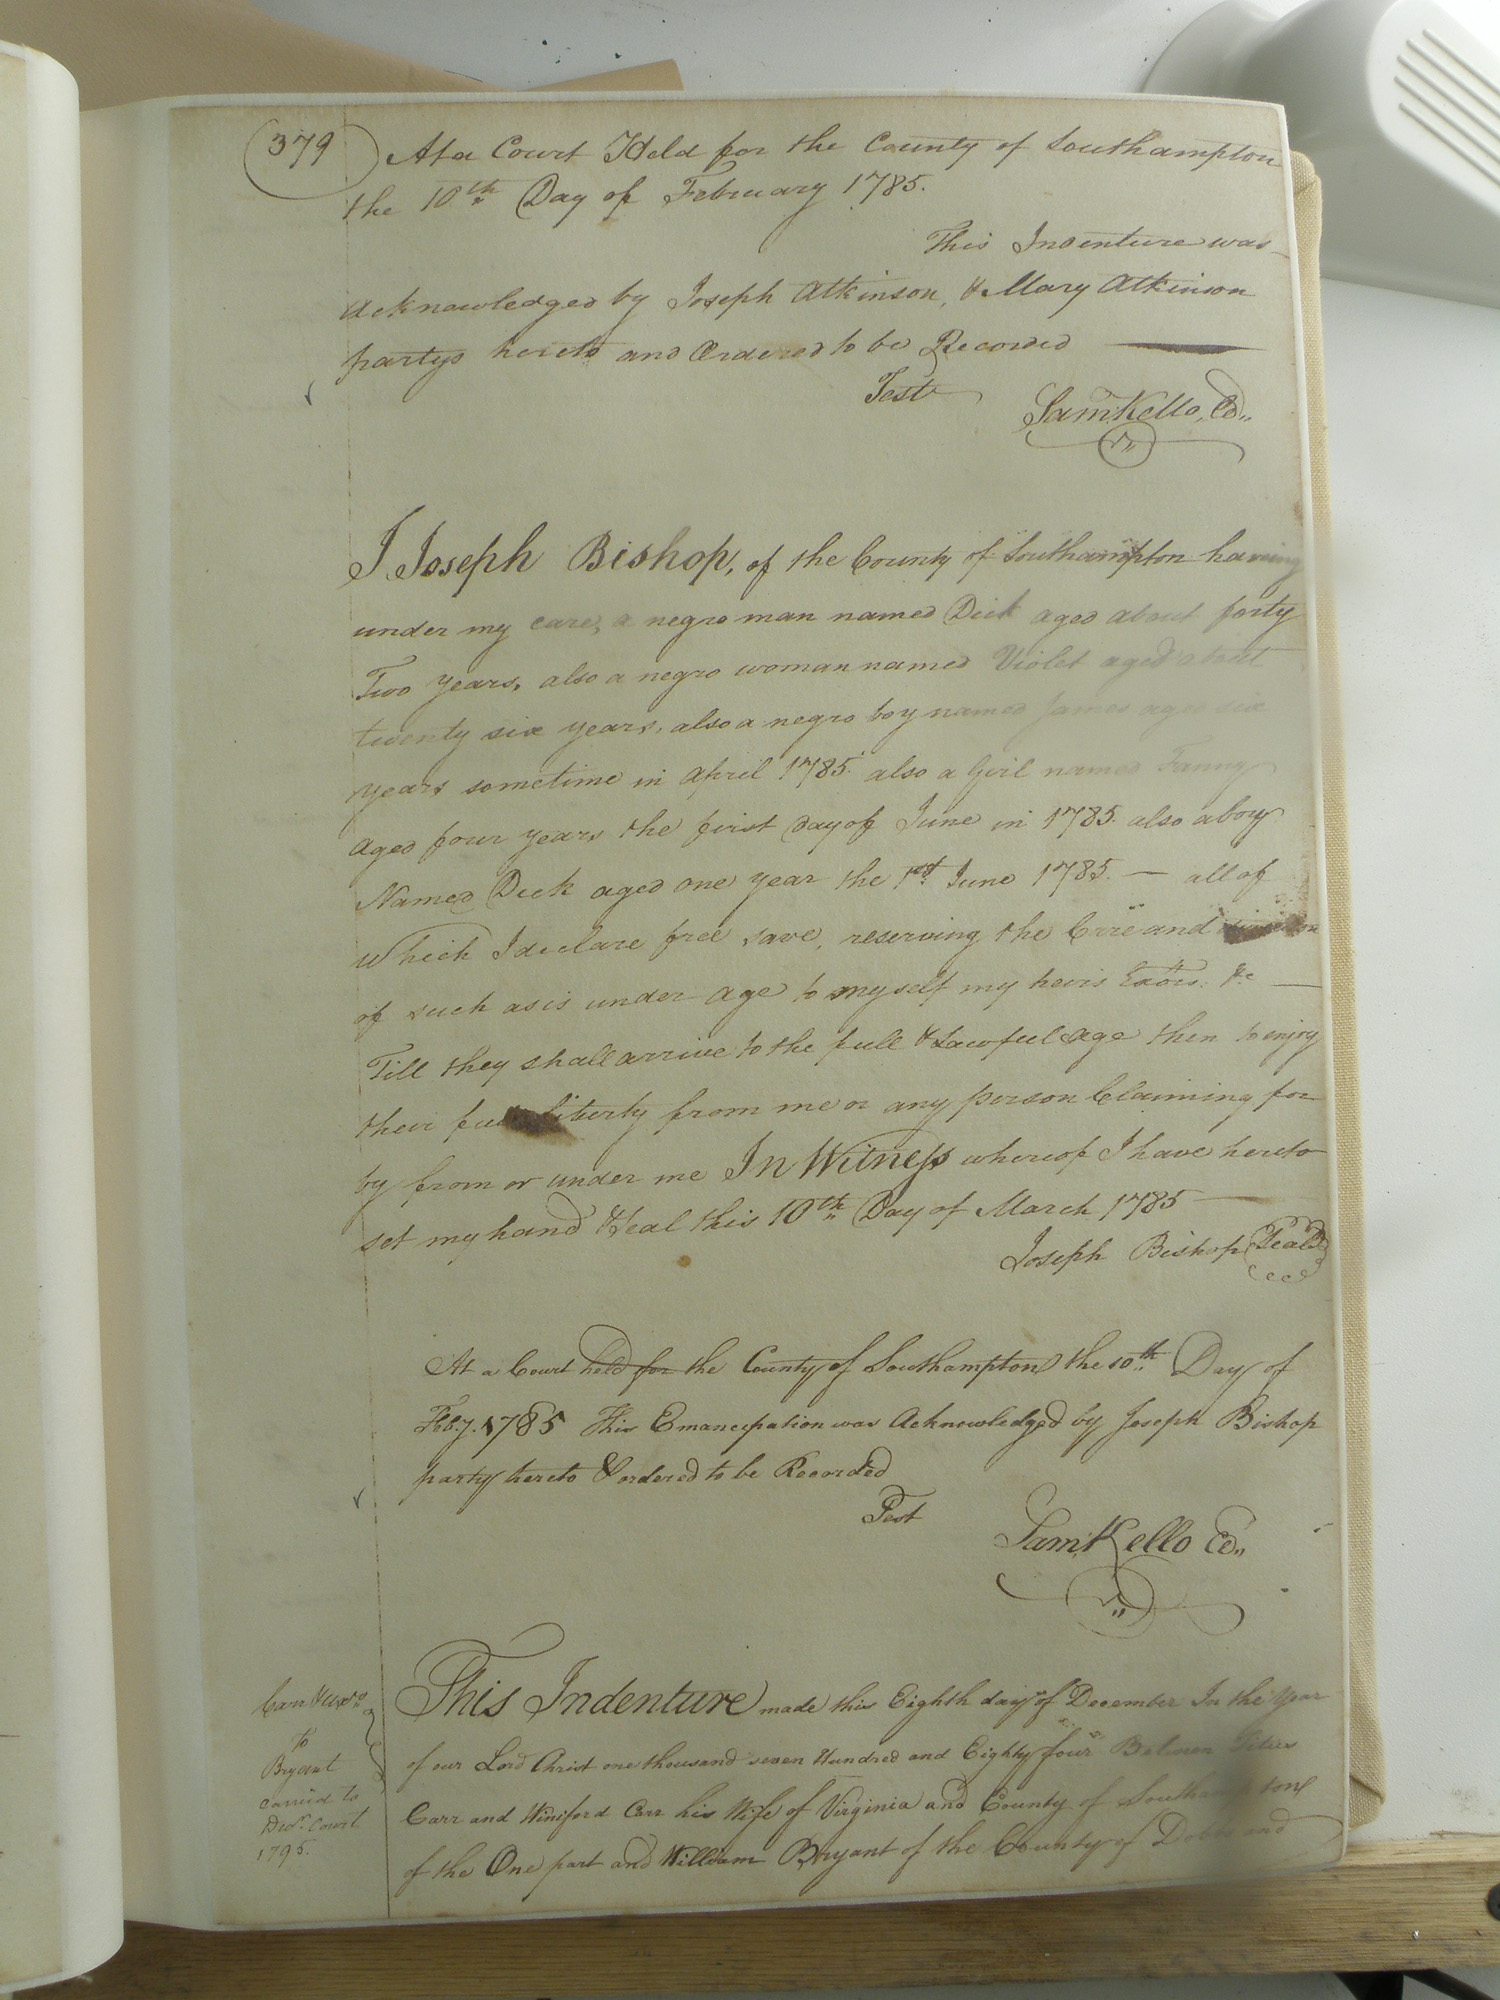 379
At a Court Held for the County of Southampton
the 10th Day of February 1785.
This Indenture was
Acknowledged by Joseph Atkinson, & Mary Atkinson
partys hereto and Ordered to be Recorded
Test
Sam Kello, CCl,,
I Joseph Bishop, of the County of Southampton having
under my care, a negro man named Dick aged about forty
Two years, also a negro woman named Violet aged about
twenty six years, also a negro boy named James aged six
years sometime in April 1785. also a Girl named Fanny
aged four years the first day of June in 1785. also a boy
Named Dick aged one year the 1st June 1785. — all of
which I declare free save, reserving the Care and
of such as is under age to myself my heirs Exōrs. &c —
Till they shall arrive to the full & Lawful age then to enjoy
their full liberty from me or any person Claiming for
by from or under me In Witness whereof I have hereto
set my hand & Seal this 10th Day of March 1785
Joseph Bishop Seal
At a Court held for the County of Southampton the 10th Day of
Feb.y. 1785 This Emancipation was Acknowledged by Joseph Bishop
party hereto & ordered to be Recorded
Test
Sam Kello CCl,,
Carr & uxr.
to
Bryant
carried to
Dist. Court
1795.
This Indenture made this Eighth day of December In the Year
of our Lord Christ one thousand seven Hundred and Eighty four Between Titus
Carr and Winiford Carr his Wife of Virginia and County of Southampton
of the One part and William Bryant of the County of Dobbs and